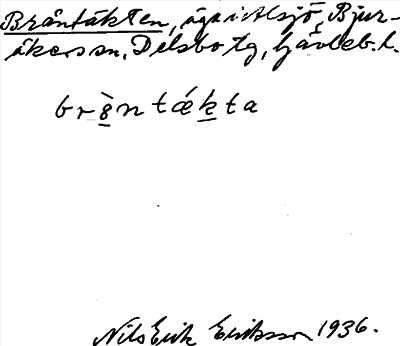 Bråntäkten, äga i Alsjö, Bjur-
åkers sn, Delsbo tg, Gävleb. l.
br8̲̀ntǽk̲ta
Nils Erik Eriksson 1936.